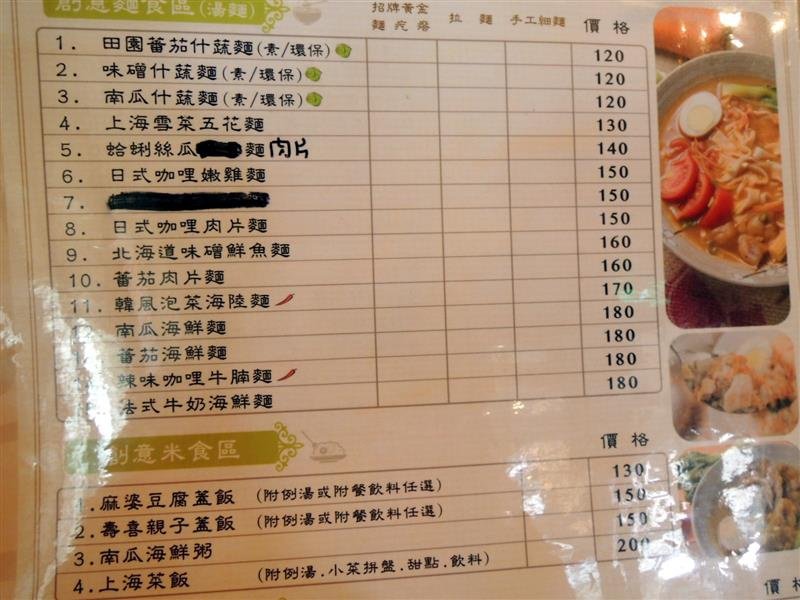 創意麵食區(湯麵)
招牌黃金
麵疙瘩 拉麵 手工細麵 價格
1. 田園蕃茄什蔬麵(素/環保) 120
2. 味磳什蔬麵(素/環保) 120
3. 南瓜什蔬麵(素/環保) 120
4. 上海雪菜五花麵 130
5. 蛤蜊絲瓜 麵肉片 140
6. 日式咖哩嫩雞麵 150
7. 150
8. 日式咖哩肉片麵 150
9. 北海道味磳鮮魚麵 160
10. 蕃茄肉片麵 160
11. 韓風泡菜海陸麵 170
12. 南瓜海鮮麵 180
蕃茄海鮮麵 180
辣味咖哩牛腩麵 180
法式牛奶海鮮麵 180
創意米食區 價格
1. 麻婆豆腐蓋飯 (附例湯或附餐飲料任選) 130
2. 壽喜親子蓋飯 (附例湯或附餐飲料任選) 150
3. 南瓜海鮮粥 150
4. 上海菜飯 (附例湯.小菜拼盤.甜點.飲料) 200
價格